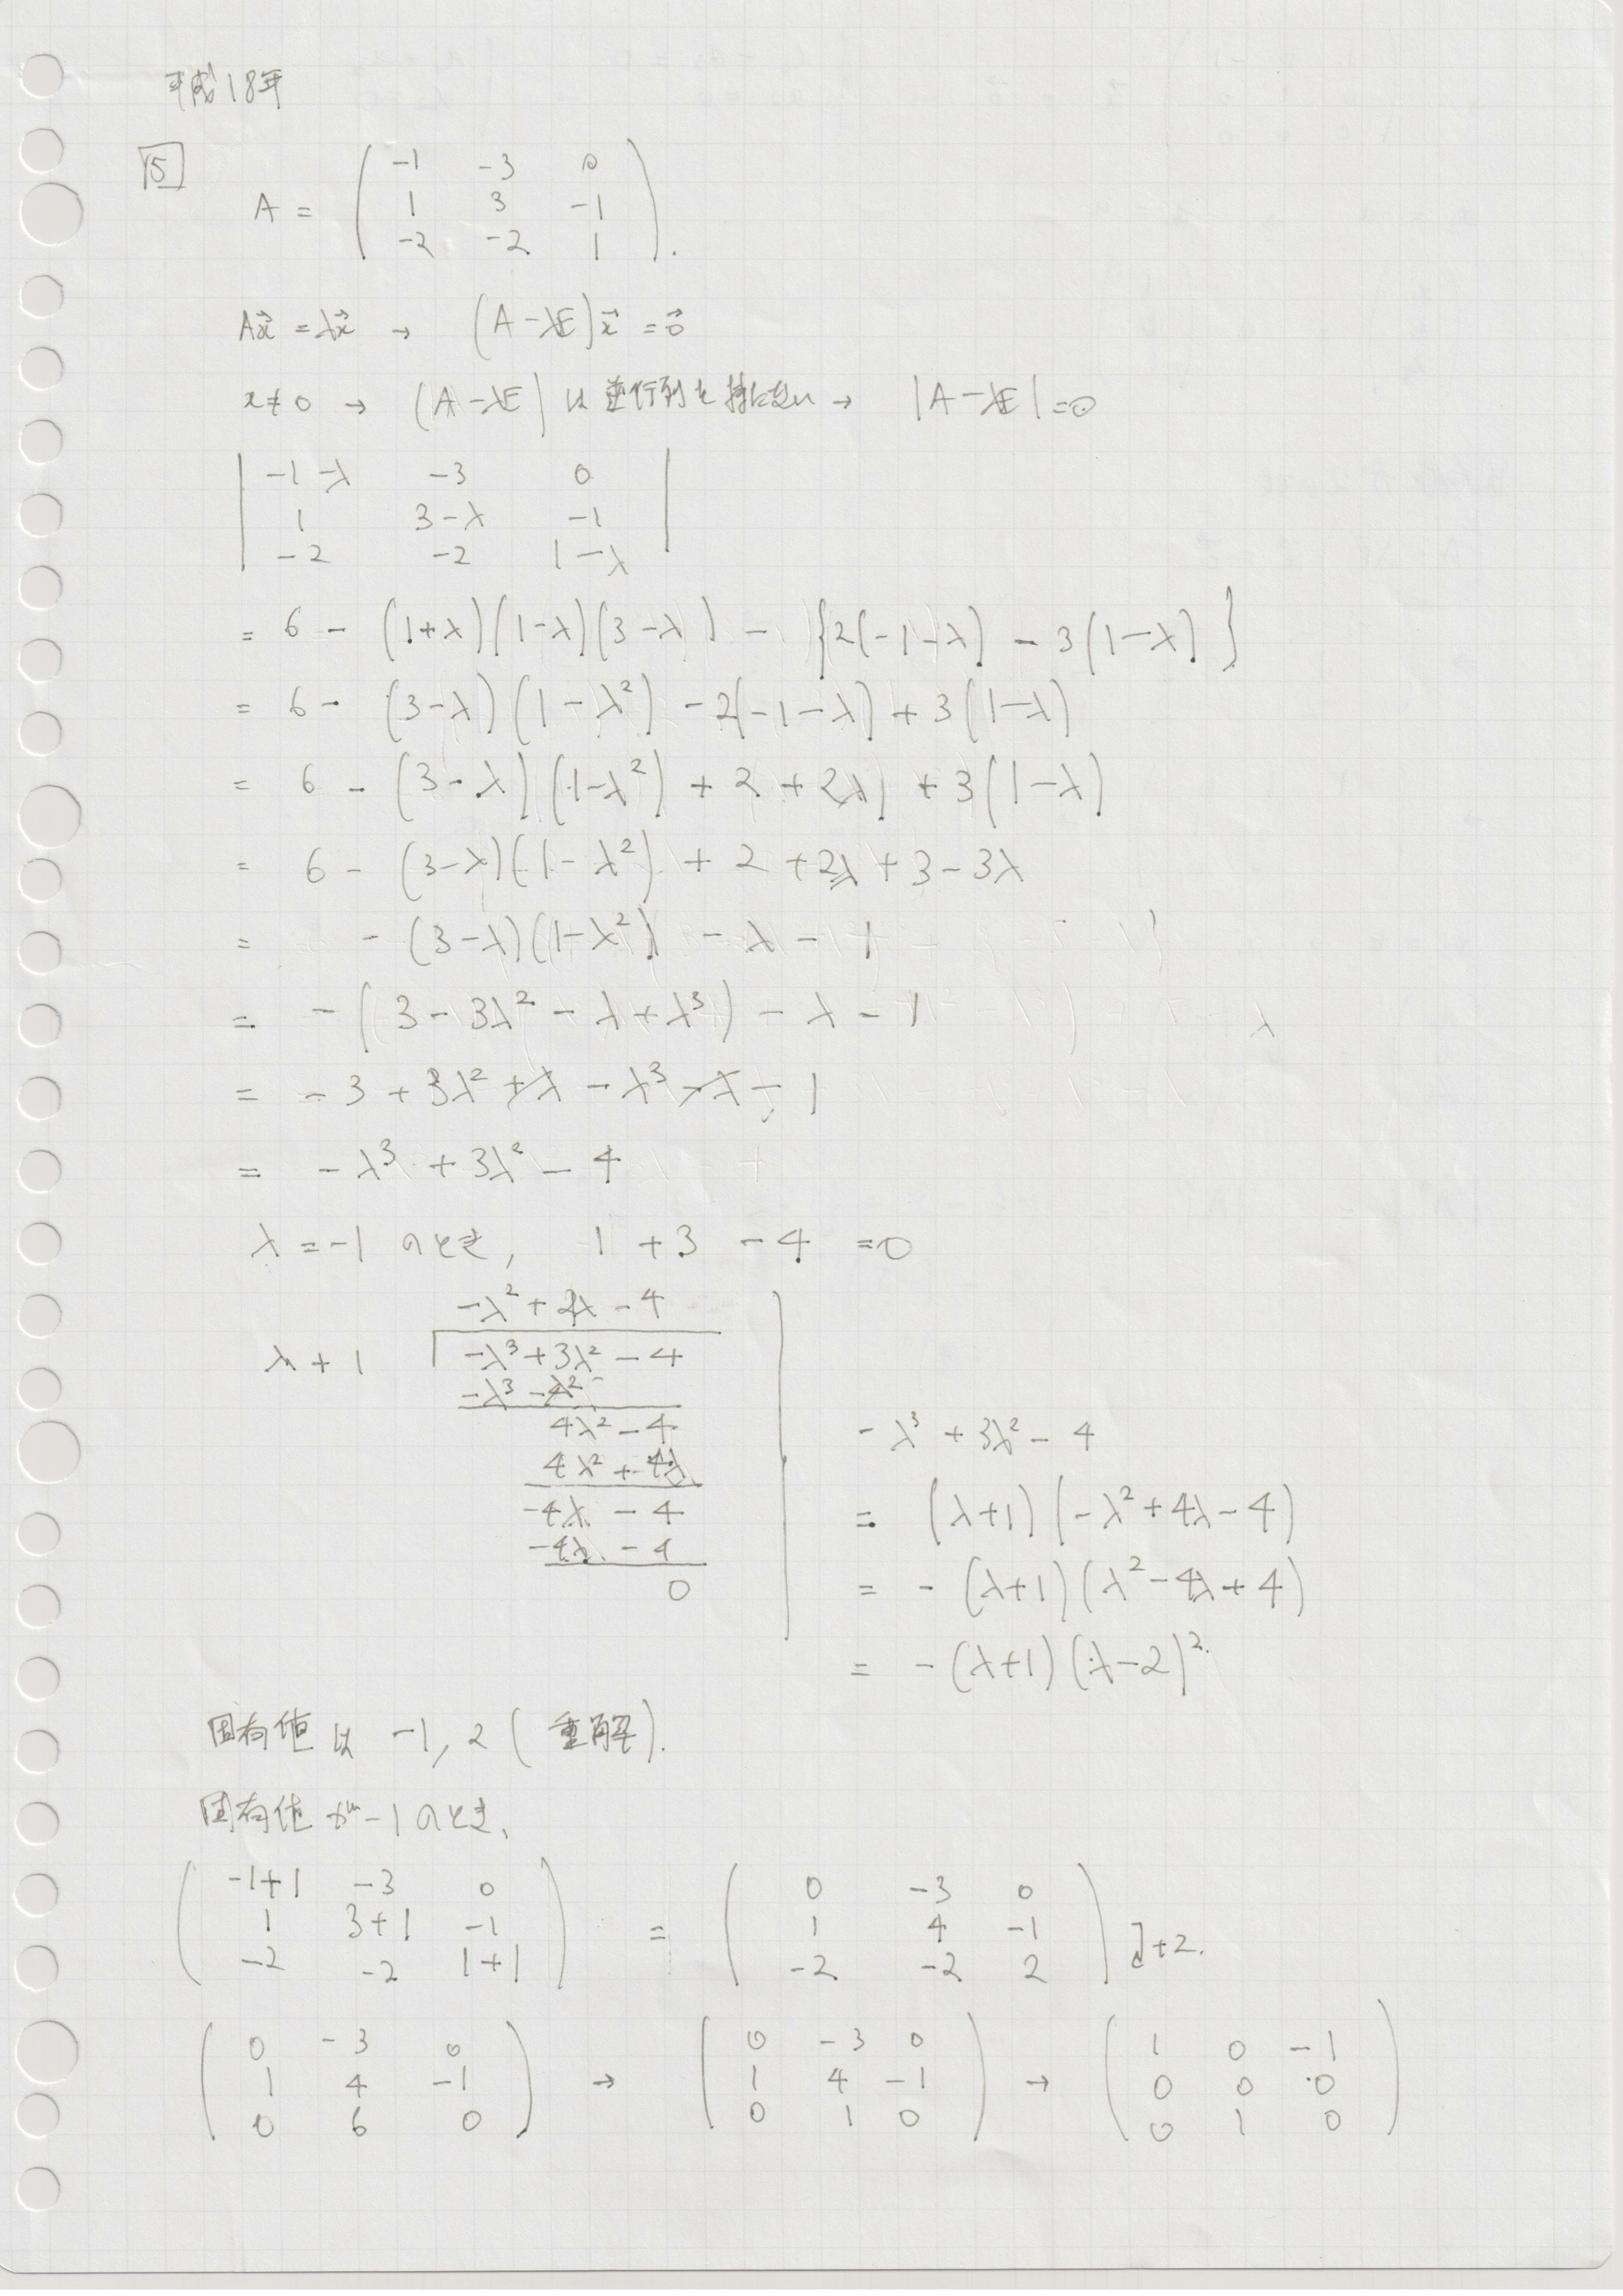 平成18年
5
A = ( -1 -3 0
1 3 -1
-2 -2 1 ).
Ax⃗ = λx⃗ → (A-λE)x⃗ = 0⃗
x≠0 → (A-λE) は逆行列を持たない → |A-λE|=0
| -1-λ -3 0
1 3-λ -1
-2 -2 1-λ |
= 6 - (1+λ)(1-λ)(3-λ) - {2(-1-λ) - 3(1-λ)}
= 6 - (3-λ)(1-λ²) - 2(-1-λ) + 3(1-λ)
= 6 - (3-λ)(1-λ²) + 2 + 2λ) + 3(1-λ)
= 6 - (3-λ)(1-λ²) + 2 + 2λ + 3 - 3λ
= - (3-λ)(1-λ²) - λ - 1
= - (3 - 3λ² - λ + λ³) - λ - 1
= - 3 + 3λ² + λ - λ³ - λ - 1
= - λ³ + 3λ² - 4
λ = -1 のとき, 1 + 3 - 4 = 0
-λ² + 4λ - 4
λ + 1 -λ³ + 3λ² - 4
-λ³ - λ²
4λ² - 4
4λ² + 4λ
-4λ - 4
-4λ - 4
0
- λ³ + 3λ² - 4
= (λ+1)(-λ² + 4λ - 4)
= - (λ+1)(λ² - 4λ + 4)
= - (λ+1)(λ-2)².
固有値は -1, 2 (重解).
固有値が -1 のとき、
( -1+1 -3 0
1 3+1 -1
-2 -2 1+1 ) = ( 0 -3 0
1 4 -1
-2 -2 2 ) +2.
( 0 -3 0
1 4 -1
0 6 0 ) → ( 0 -3 0
1 4 -1
0 1 0 ) → ( 1 0 -1
0 0 0
0 1 0 )